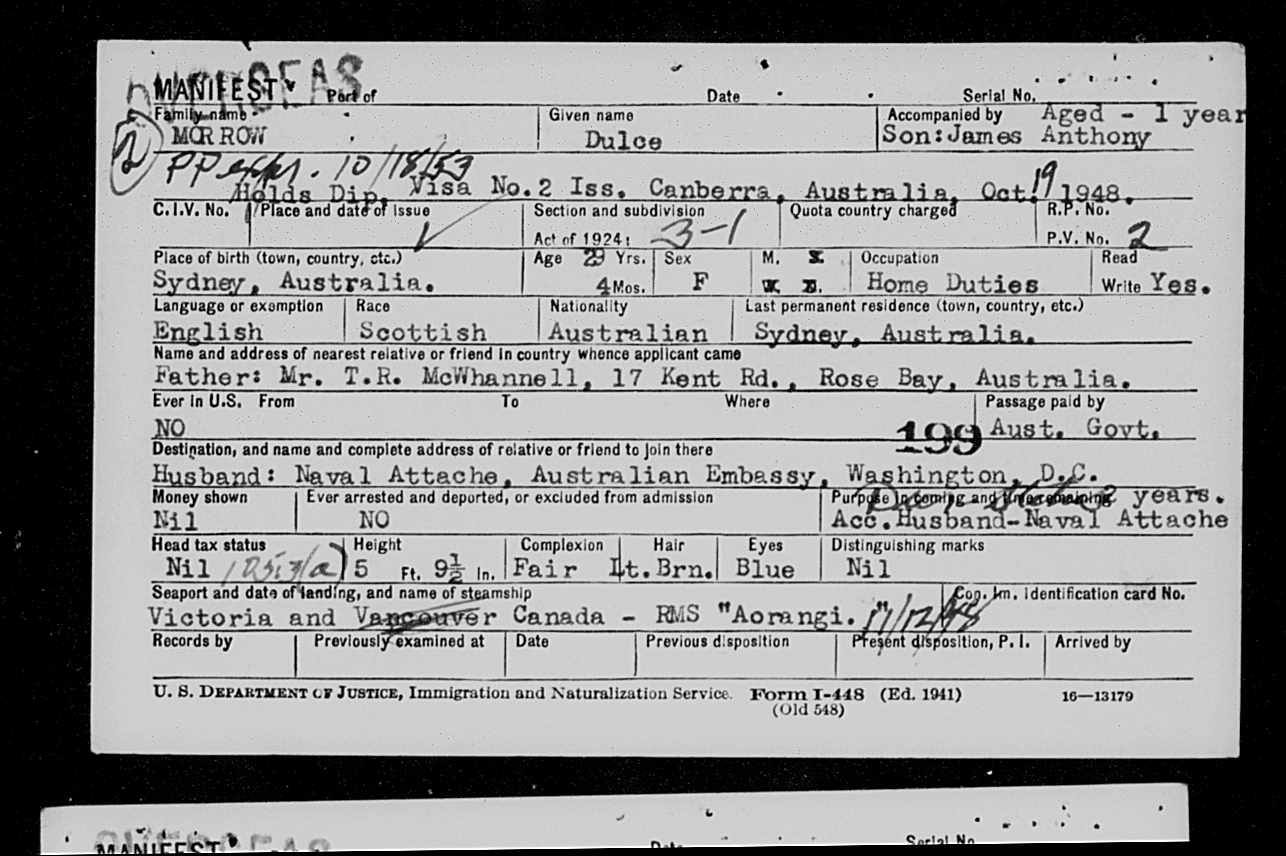 OVERSEAS
MANIFEST Port of Date Serial No.
Family name Given name Accompanied by Aged - 1 year
MORROW Dulce Son:James Anthony
2
PP expr. 10/18/53
Holds Dip. Visa No.2 Iss. Canberra, Australia, Oct. 19 1948.
C.I.V. No. Place and date of issue Section and subdivision Quota country charged R.P. No.
Act of 1924: 3-1 P.V. No. 2
Place of birth (town, country, etc.) Age 29 Yrs. Sex M. S. Occupation Read
Sydney, Australia. 4 Mos. F W. D. Home Duties Write Yes.
Language or exemption Race Nationality Last permanent residence (town, country, etc.)
English Scottish Australian Sydney, Australia.
Name and address of nearest relative or friend in country whence applicant came
Father: Mr. T.R. McWhannell, 17 Kent Rd., Rose Bay, Australia.
Ever in U.S. From To Where Passage paid by
NO 199 Aust. Govt.
Destination, and name and complete address of relative or friend to join there
Husband: Naval Attache, Australian Embassy, Washington, D.C.
Money shown Ever arrested and deported, or excluded from admission Purpose in coming and time remaining 2 years.
Nil NO Acc.Husband-Naval Attache
Head tax status Height Complexion Hair Eyes Distinguishing marks
Nil 5 Ft. 9½ In. Fair Lt.Brn. Blue Nil
Seaport and date of landing, and name of steamship Con. Im. identification card No.
Victoria and Vancouver Canada - RMS "Aorangi." 11/12/48
Records by Previously examined at Date Previous disposition Present disposition, P. I. Arrived by
U. S. DEPARTMENT OF JUSTICE, Immigration and Naturalization Service. Form I-448 (Ed. 1941) 16—13179
(Old 548)
MANIFEST Date Serial No.